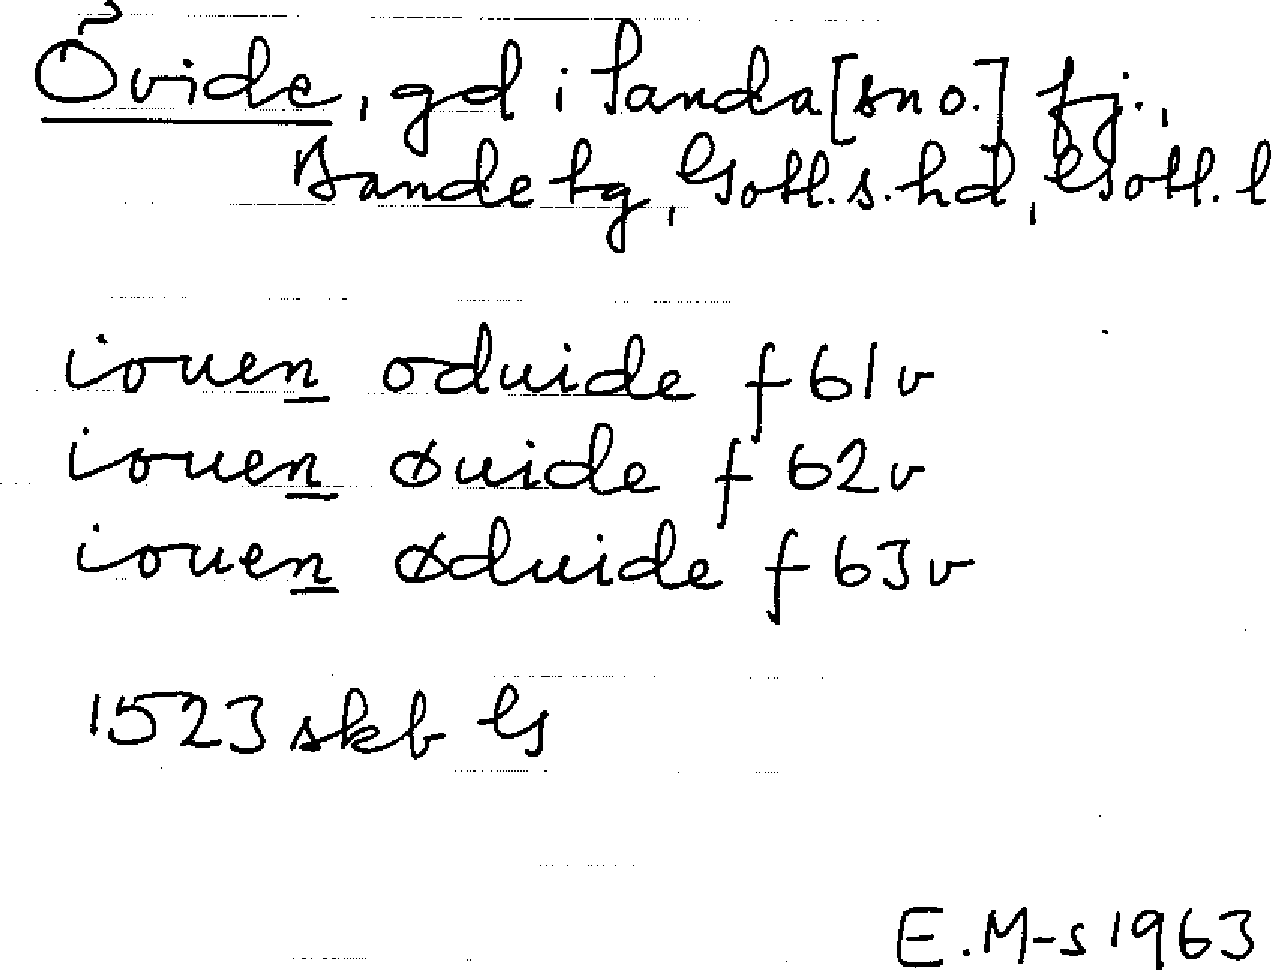 Övide, gd i Sanda [sn o.] fj.,
Banda tg, Gotl. s. hd, Gotl. l
iouen oduide f 61v
iouen øuide f 62v
iouen øduide f 63v
1523 skb G
E. M-s 1963